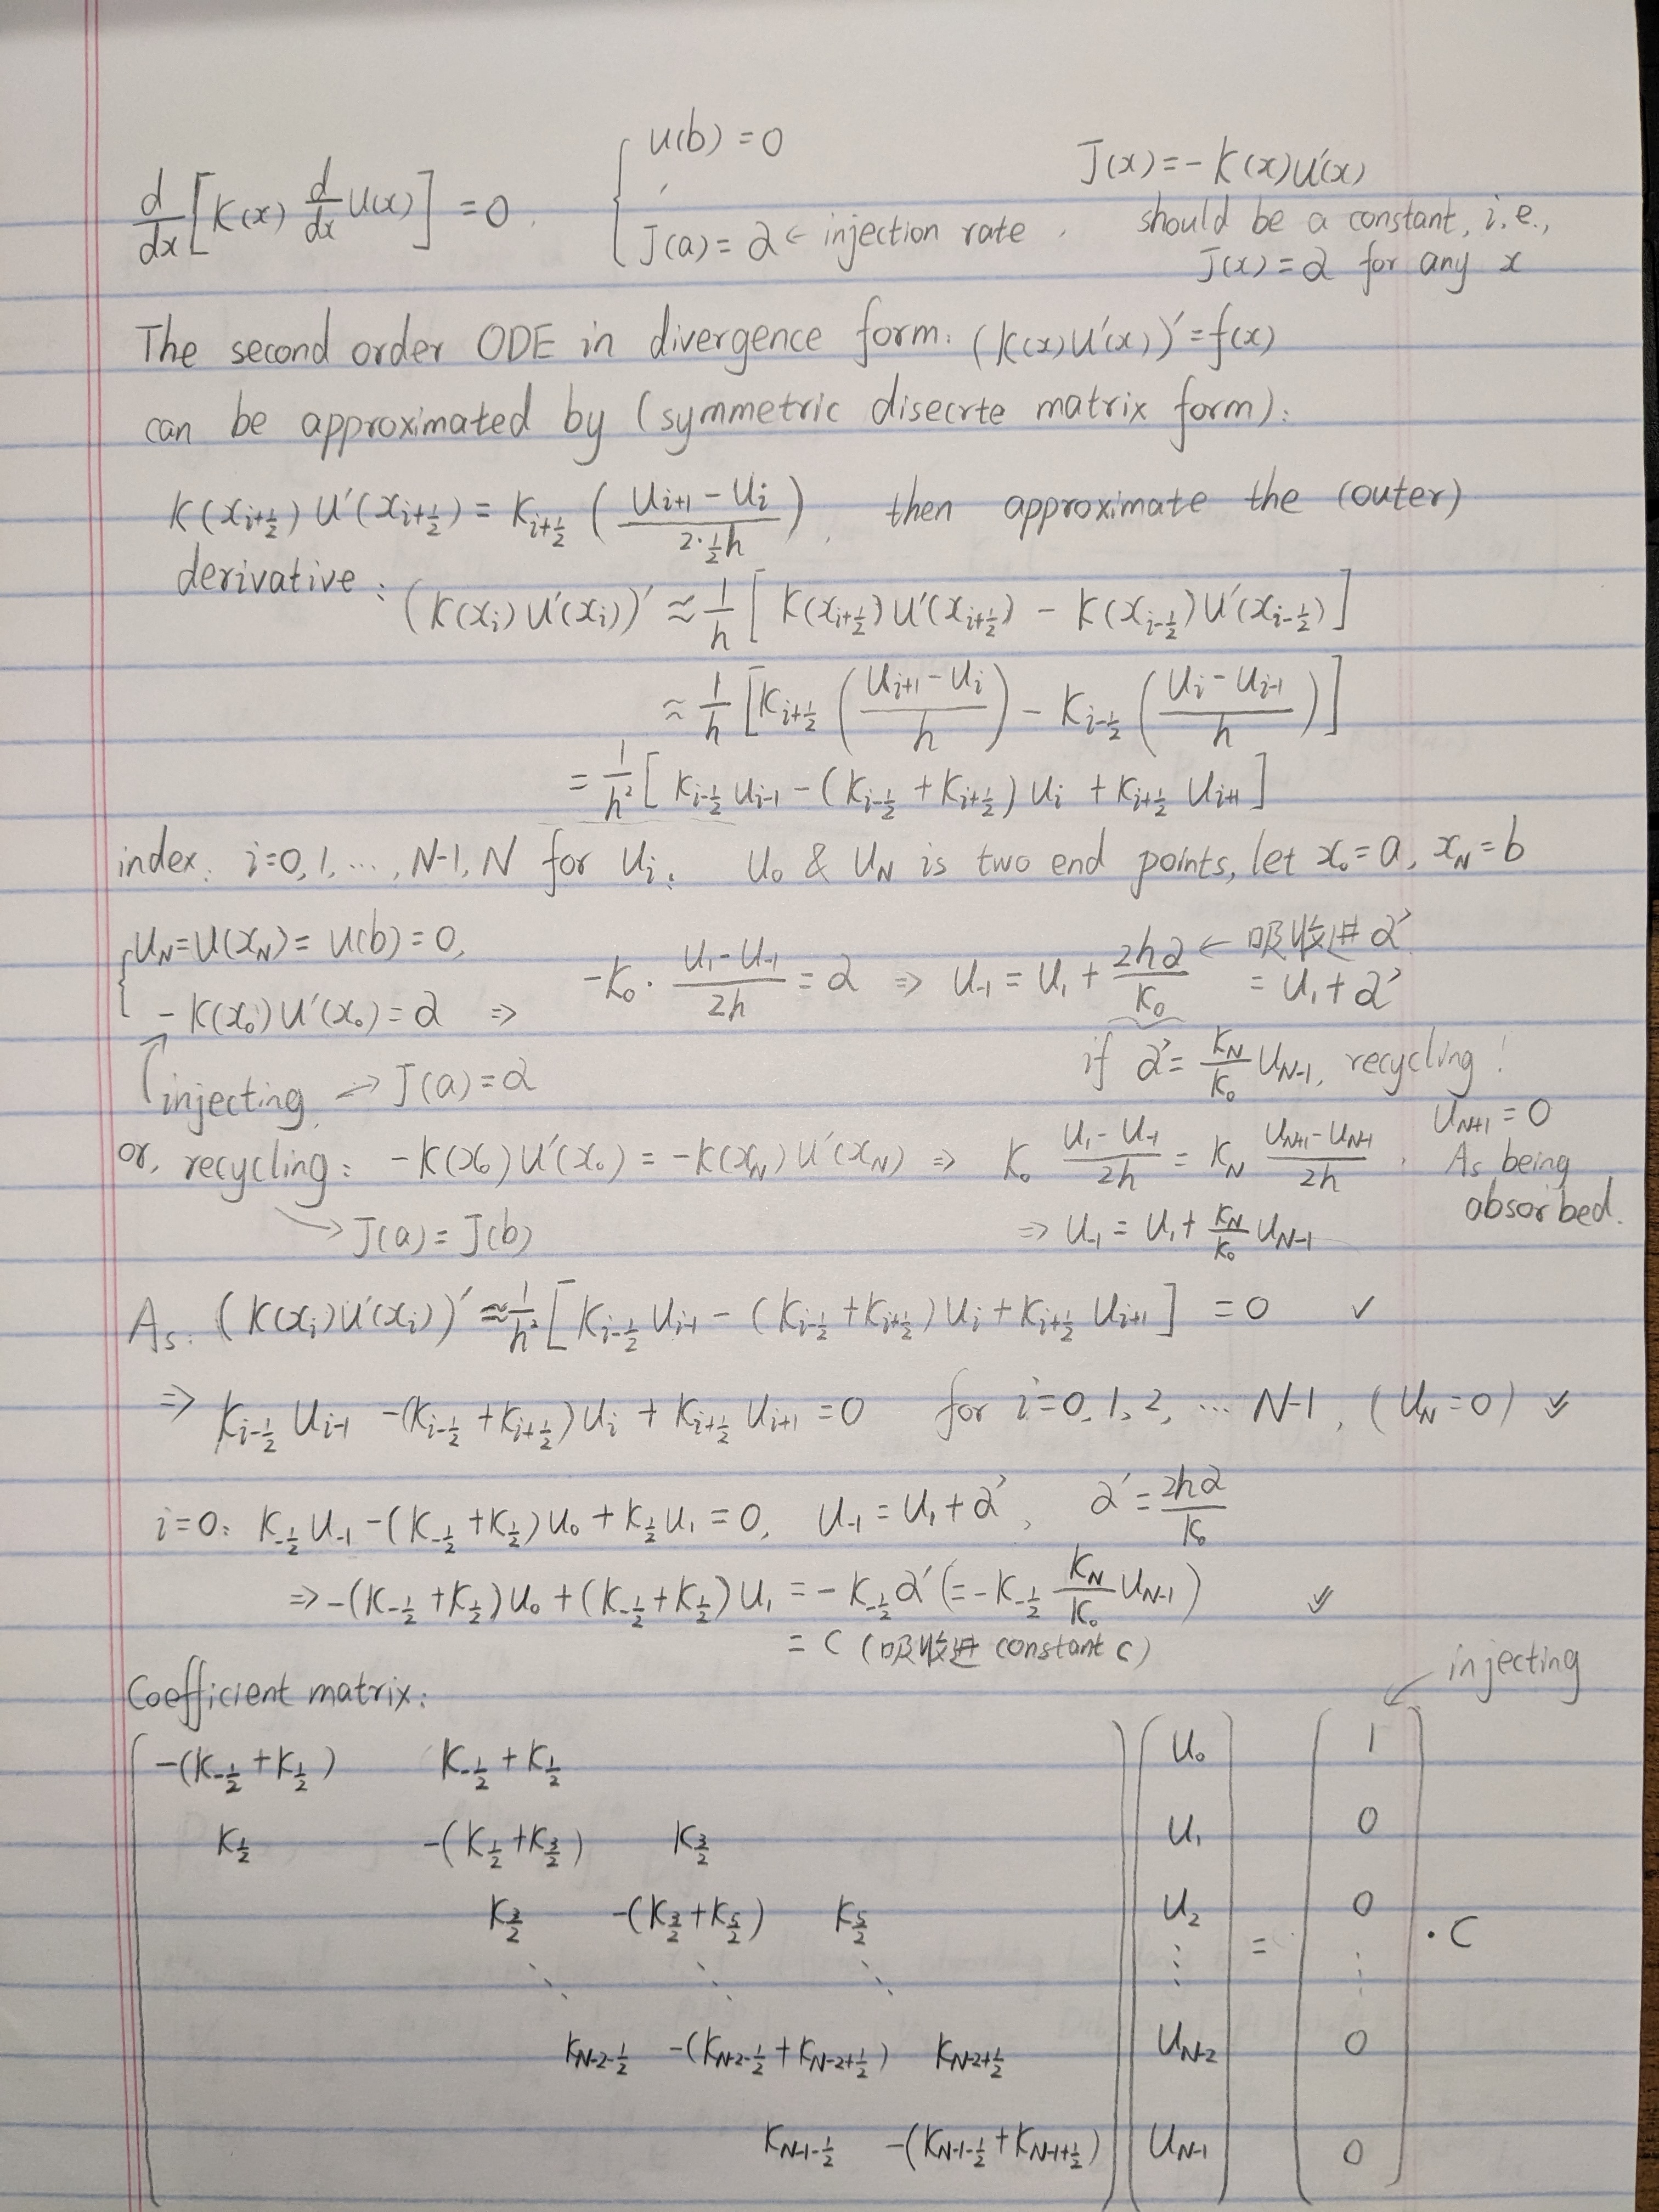 d/dx [K(x) d/dx U(x)] = 0, { U(b) = 0, J(a) = α ← injection rate. J(x) = - K(x)U'(x)
should be a constant, i.e.,
J(x) = α for any x
The second order ODE in divergence form: (K(x)U'(x))' = f(x)
can be approximated by (symmetric disecrte matrix form):
K(x_{i+1/2}) U'(x_{i+1/2}) = K_{i+1/2} ( (U_{i+1} - U_i) / (2·½h) ), then approximate the (outer)
derivative: (K(x_i) U'(x_i))' ≈ 1/h [ K(x_{i+1/2}) U'(x_{i+1/2}) - K(x_{i-1/2}) U'(x_{i-1/2}) ]
≈ 1/h [ K_{i+1/2} ( (U_{i+1} - U_i) / h ) - K_{i-1/2} ( (U_i - U_{i-1}) / h ) ]
= 1/h² [ K_{i-1/2} U_{i-1} - (K_{i-1/2} + K_{i+1/2}) U_i + K_{i+1/2} U_{i+1} ]
index: i=0, 1, ..., N-1, N for U_i. U_0 & U_N is two end points, let x_0 = a, x_N = b
{ U_N = U(x_N) = U(b) = 0,
- K(x_0) U'(x_0) = α ⇒ -K_0 · (U_1 - U_{-1}) / 2h = α ⇒ U_{-1} = U_1 + 2hα/K_0 ← 吸收进 α'
= U_1 + α'
if α' = K_N/K_0 U_{N-1}, recycling!
injecting → J(a) = α
or, recycling: -K(x_0) U'(x_0) = -K(x_N) U'(x_N) ⇒ K_0 (U_1 - U_{-1}) / 2h = K_N (U_{N+1} - U_{N-1}) / 2h. U_{N+1} = 0
As being
absorbed.
→ J(a) = J(b)
⇒ U_{-1} = U_1 + K_N/K_0 U_{N-1}
As: (K(x_i) U'(x_i))' ≈ 1/h² [ K_{i-1/2} U_{i-1} - (K_{i-1/2} + K_{i+1/2}) U_i + K_{i+1/2} U_{i+1} ] = 0 ✓
⇒ K_{i-1/2} U_{i-1} - (K_{i-1/2} + K_{i+1/2}) U_i + K_{i+1/2} U_{i+1} = 0 for i=0, 1, 2, ... N-1, (U_N = 0) ✓
i=0: K_{-1/2} U_{-1} - (K_{-1/2} + K_{1/2}) U_0 + K_{1/2} U_1 = 0, U_{-1} = U_1 + α', α' = 2hα/K_0
⇒ -(K_{-1/2} + K_{1/2}) U_0 + (K_{-1/2} + K_{1/2}) U_1 = - K_{-1/2} α' (= -K_{-1/2} K_N/K_0 U_{N-1}) ✓
= C (吸收进 constant C)
Coefficient matrix: injecting
-(K_{-1/2} + K_{1/2}) K_{-1/2} + K_{1/2} U_0 1
K_{1/2} -(K_{1/2} + K_{3/2}) K_{3/2} U_1 0
K_{3/2} -(K_{3/2} + K_{5/2}) K_{5/2} U_2 0
⋱ ⋱ ⋱ ⋮ = ⋮ · C
K_{N-2-1/2} -(K_{N-2-1/2} + K_{N-2+1/2}) K_{N-2+1/2} U_{N-2} 0
K_{N-1-1/2} -(K_{N-1-1/2} + K_{N-1+1/2}) U_{N-1} 0